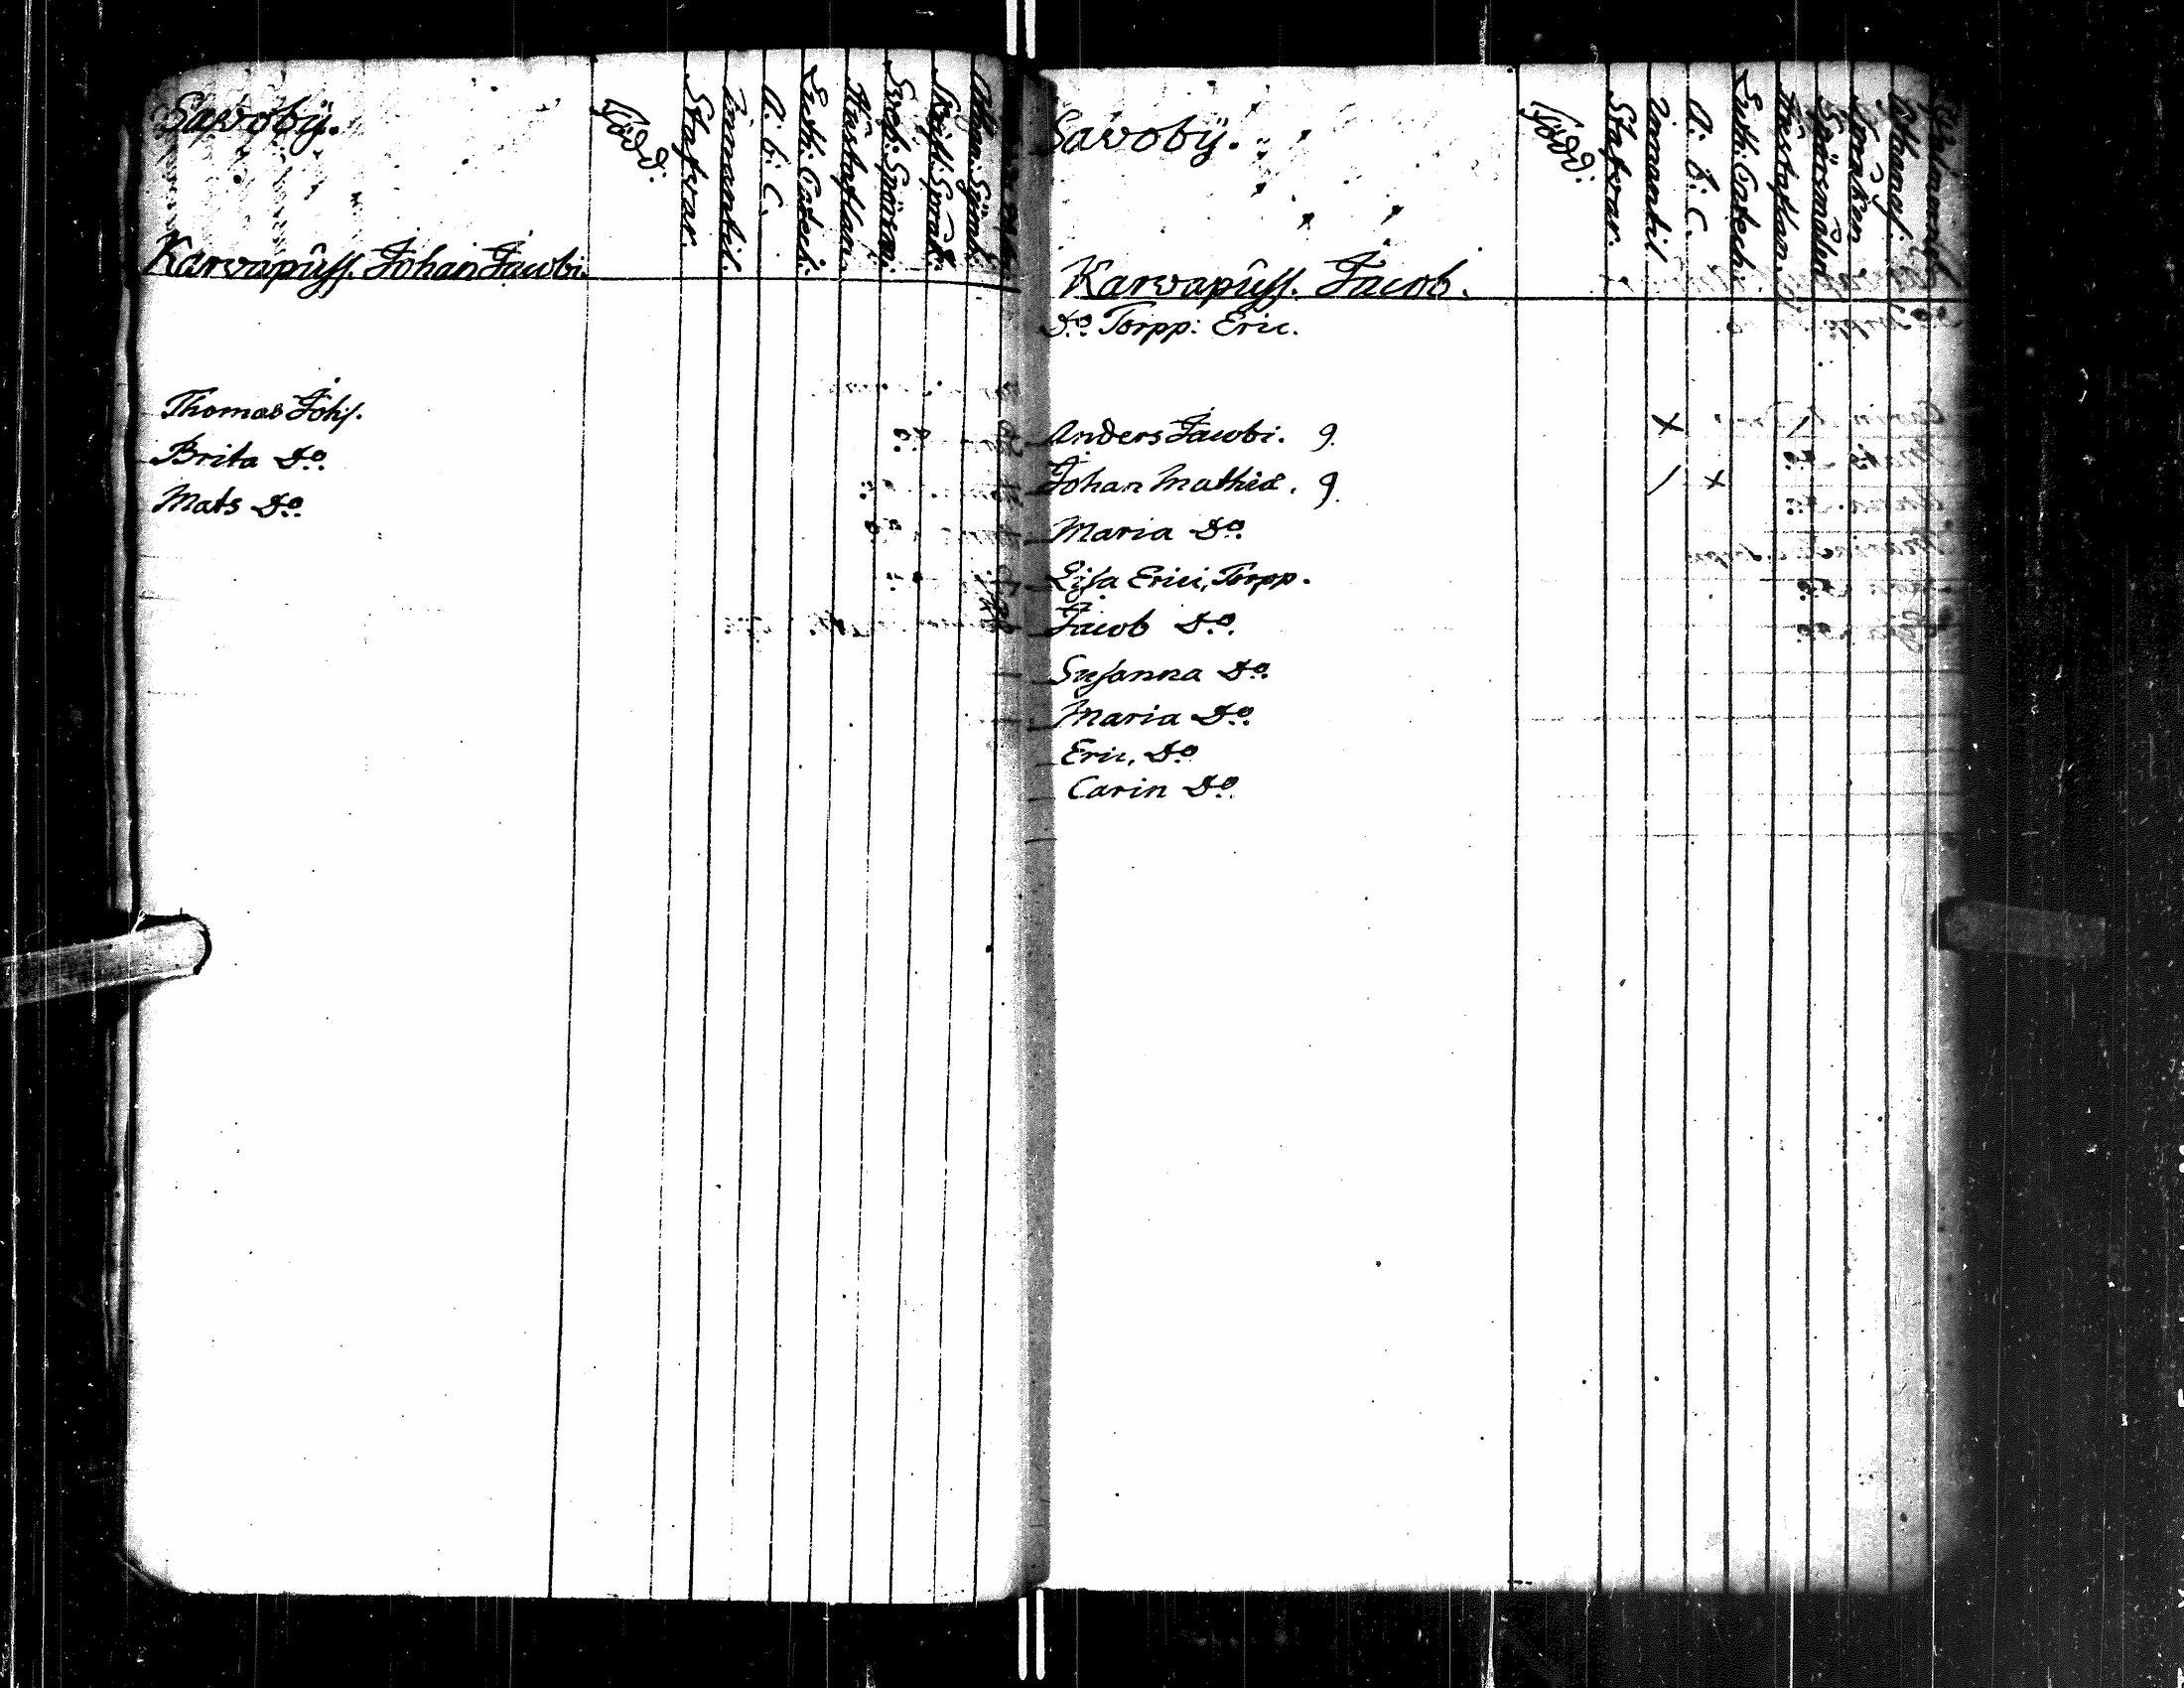 Savoby.
Född.
Stafvar.
Innantil.
A. b. C.
Luth: Catech:
Hustaflan.
Sveb: Spörsm:
Skrift: Språk.
Athan: Symb:
Karvapuss. Johan Jacobi.
Thomas Johs.
Brita Do.
Mats Do.
Savoby.
Född.
Stafvar.
Innantil
A. b. C.
Luth: Catech:
Hustaflan.
Spörsmålen
Språken
Athanas:
Karvapuss. Jacob.
Do. Torpp: Eric.
Anders Jacobi. g. x
Johan Mathiæ. g. \ x
Maria Do.
Lisa Erici, Torpp.
Jacob Do.
Susanna Do.
Maria Do.
Eric, Do.
Carin Do.